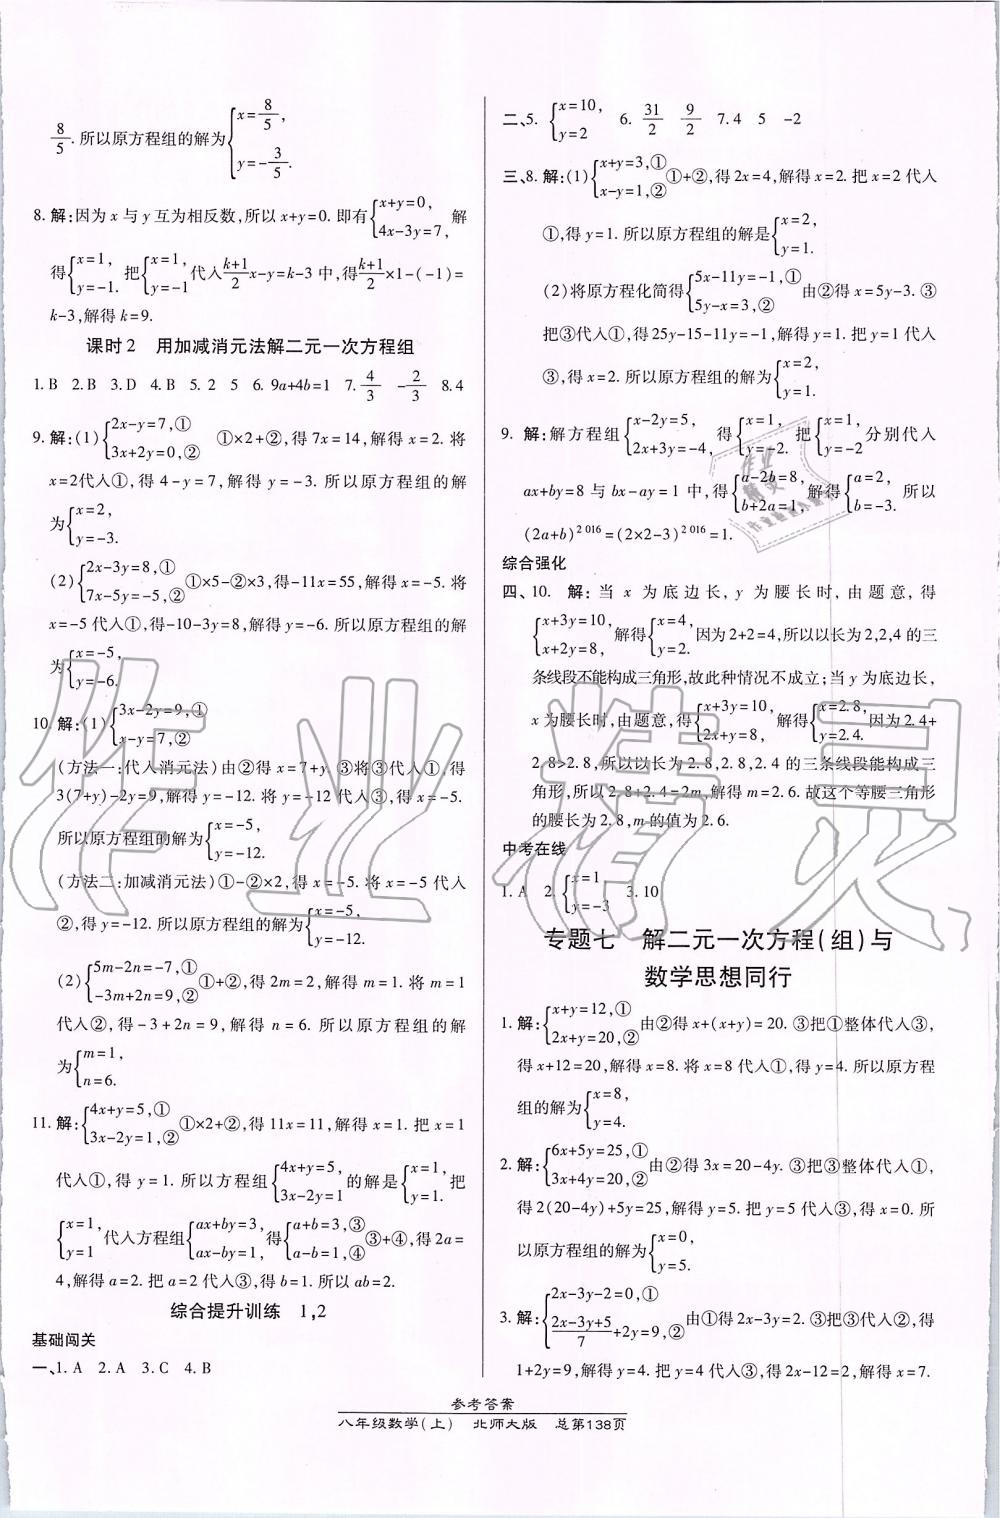 8/5.所以原方程组的解为{x=8/5, y=-3/5.
8.解:因为x与y互为相反数,所以x+y=0.即有{x+y=0, 4x-3y=7,解
得{x=1, y=-1.把{x=1, y=-1代入(k+1)/2 x-y=k-3中,得(k+1)/2×1-(-1)=
k-3,解得k=9.
课时2 用加减消元法解二元一次方程组
1.B 2.B 3.D 4.B 5.2 5 6.9a+4b=1 7.4/3 -2/3 8.4
9.解:(1){2x-y=7,① 3x+2y=0,② ①×2+②,得7x=14,解得x=2.将
x=2代入①,得4-y=7,解得y=-3.所以原方程组的解
为{x=2, y=-3.
(2){2x-3y=8,① 7x-5y=-5,②①×5-②×3,得-11x=55,解得x=-5.将
x=-5代入①,得-10-3y=8,解得y=-6.所以原方程组的解
为{x=-5, y=-6.
10.解:(1){3x-2y=9,① x-y=7,②
(方法一:代入消元法)由②得x=7+y.③将③代入①,得
3(7+y)-2y=9,解得y=-12.将y=-12代入③,得x=-5.
所以原方程组的解为{x=-5, y=-12.
(方法二:加减消元法)①-②×2,得x=-5.将x=-5代入
②,得y=-12.所以原方程组的解为{x=-5, y=-12.
(2){5m-2n=-7,① -3m+2n=9,②①+②,得2m=2,解得m=1.将m=1
代入②,得-3+2n=9,解得n=6.所以原方程组的解
为{m=1, n=6.
11.解:{4x+y=5,① 3x-2y=1,②①×2+②,得11x=11,解得x=1.把x=1
代入①,得y=1.所以方程组{4x+y=5, 3x-2y=1的解是{x=1, y=1.把
{x=1, y=1代入方程组{ax+by=3, ax-by=1,得{a+b=3,③ a-b=1,④③+④,得2a=
4,解得a=2.把a=2代入③,得b=1.所以ab=2.
综合提升训练 1,2
基础闯关
一、1.A 2.A 3.C 4.B
二、5.{x=10, y=2 6.31/2 9/2 7.4 5 -2
三、8.解:(1){x+y=3,① x-y=1,②①+②,得2x=4,解得x=2.把x=2代入
①,得y=1.所以原方程组的解是{x=2, y=1.
(2)将原方程化简得{5x-11y=-1,① 5y-x=3,②由②得x=5y-3.③
把③代入①,得25y-15-11y=-1,解得y=1.把y=1代入
③,得x=2.所以原方程组的解为{x=2, y=1.
9.解:解方程组{x-2y=5, 2x+3y=-4,得{x=1, y=-2.把{x=1, y=-2分别代入
ax+by=8与bx-ay=1中,得{a-2b=8, b+2a=1,解得{a=2, b=-3.所以
(2a+b)^2016=(2×2-3)^2016=1.
综合强化
四、10.解:当x为底边长,y为腰长时,由题意,得
{x+3y=10, x+2y=8,解得{x=4, y=2.因为2+2=4,所以以长为2,2,4的三
条线段不能构成三角形,故此种情况不成立;当y为底边长,
x为腰长时,由题意,得{x+3y=10, 2x+y=8,解得{x=2.8, y=2.4.因为2.4+
2.8>2.8,所以以长为2.8,2.8,2.4的三条线段能构成三
角形,所以2.8+2.4=2m,解得m=2.6.故这个等腰三角形
的腰长为2.8,m的值为2.6.
中考在线
1.A 2.{x=1 y=-3 3.10
专题七 解二元一次方程(组)与
数学思想同行
1.解:{x+y=12,① 2x+y=20,②由②得x+(x+y)=20.③把①整体代入③,
得x+12=20,解得x=8.将x=8代入①,得y=4.所以原方程
组的解为{x=8, y=4.
2.解:{6x+5y=25,① 3x+4y=20,②由②得3x=20-4y.③把③整体代入①,
得2(20-4y)+5y=25,解得y=5.把y=5代入③,得x=0.所
以原方程组的解为{x=0, y=5.
3.解:{2x-3y-2=0,① (2x-3y+5)/7+2y=9,②由①得2x-3y=2.③把③代入②,得
1+2y=9,解得y=4.把y=4代入③,得2x-12=2,解得x=7.
参考答案
八年级数学(上) 北师大版 总第138页
作业精灵